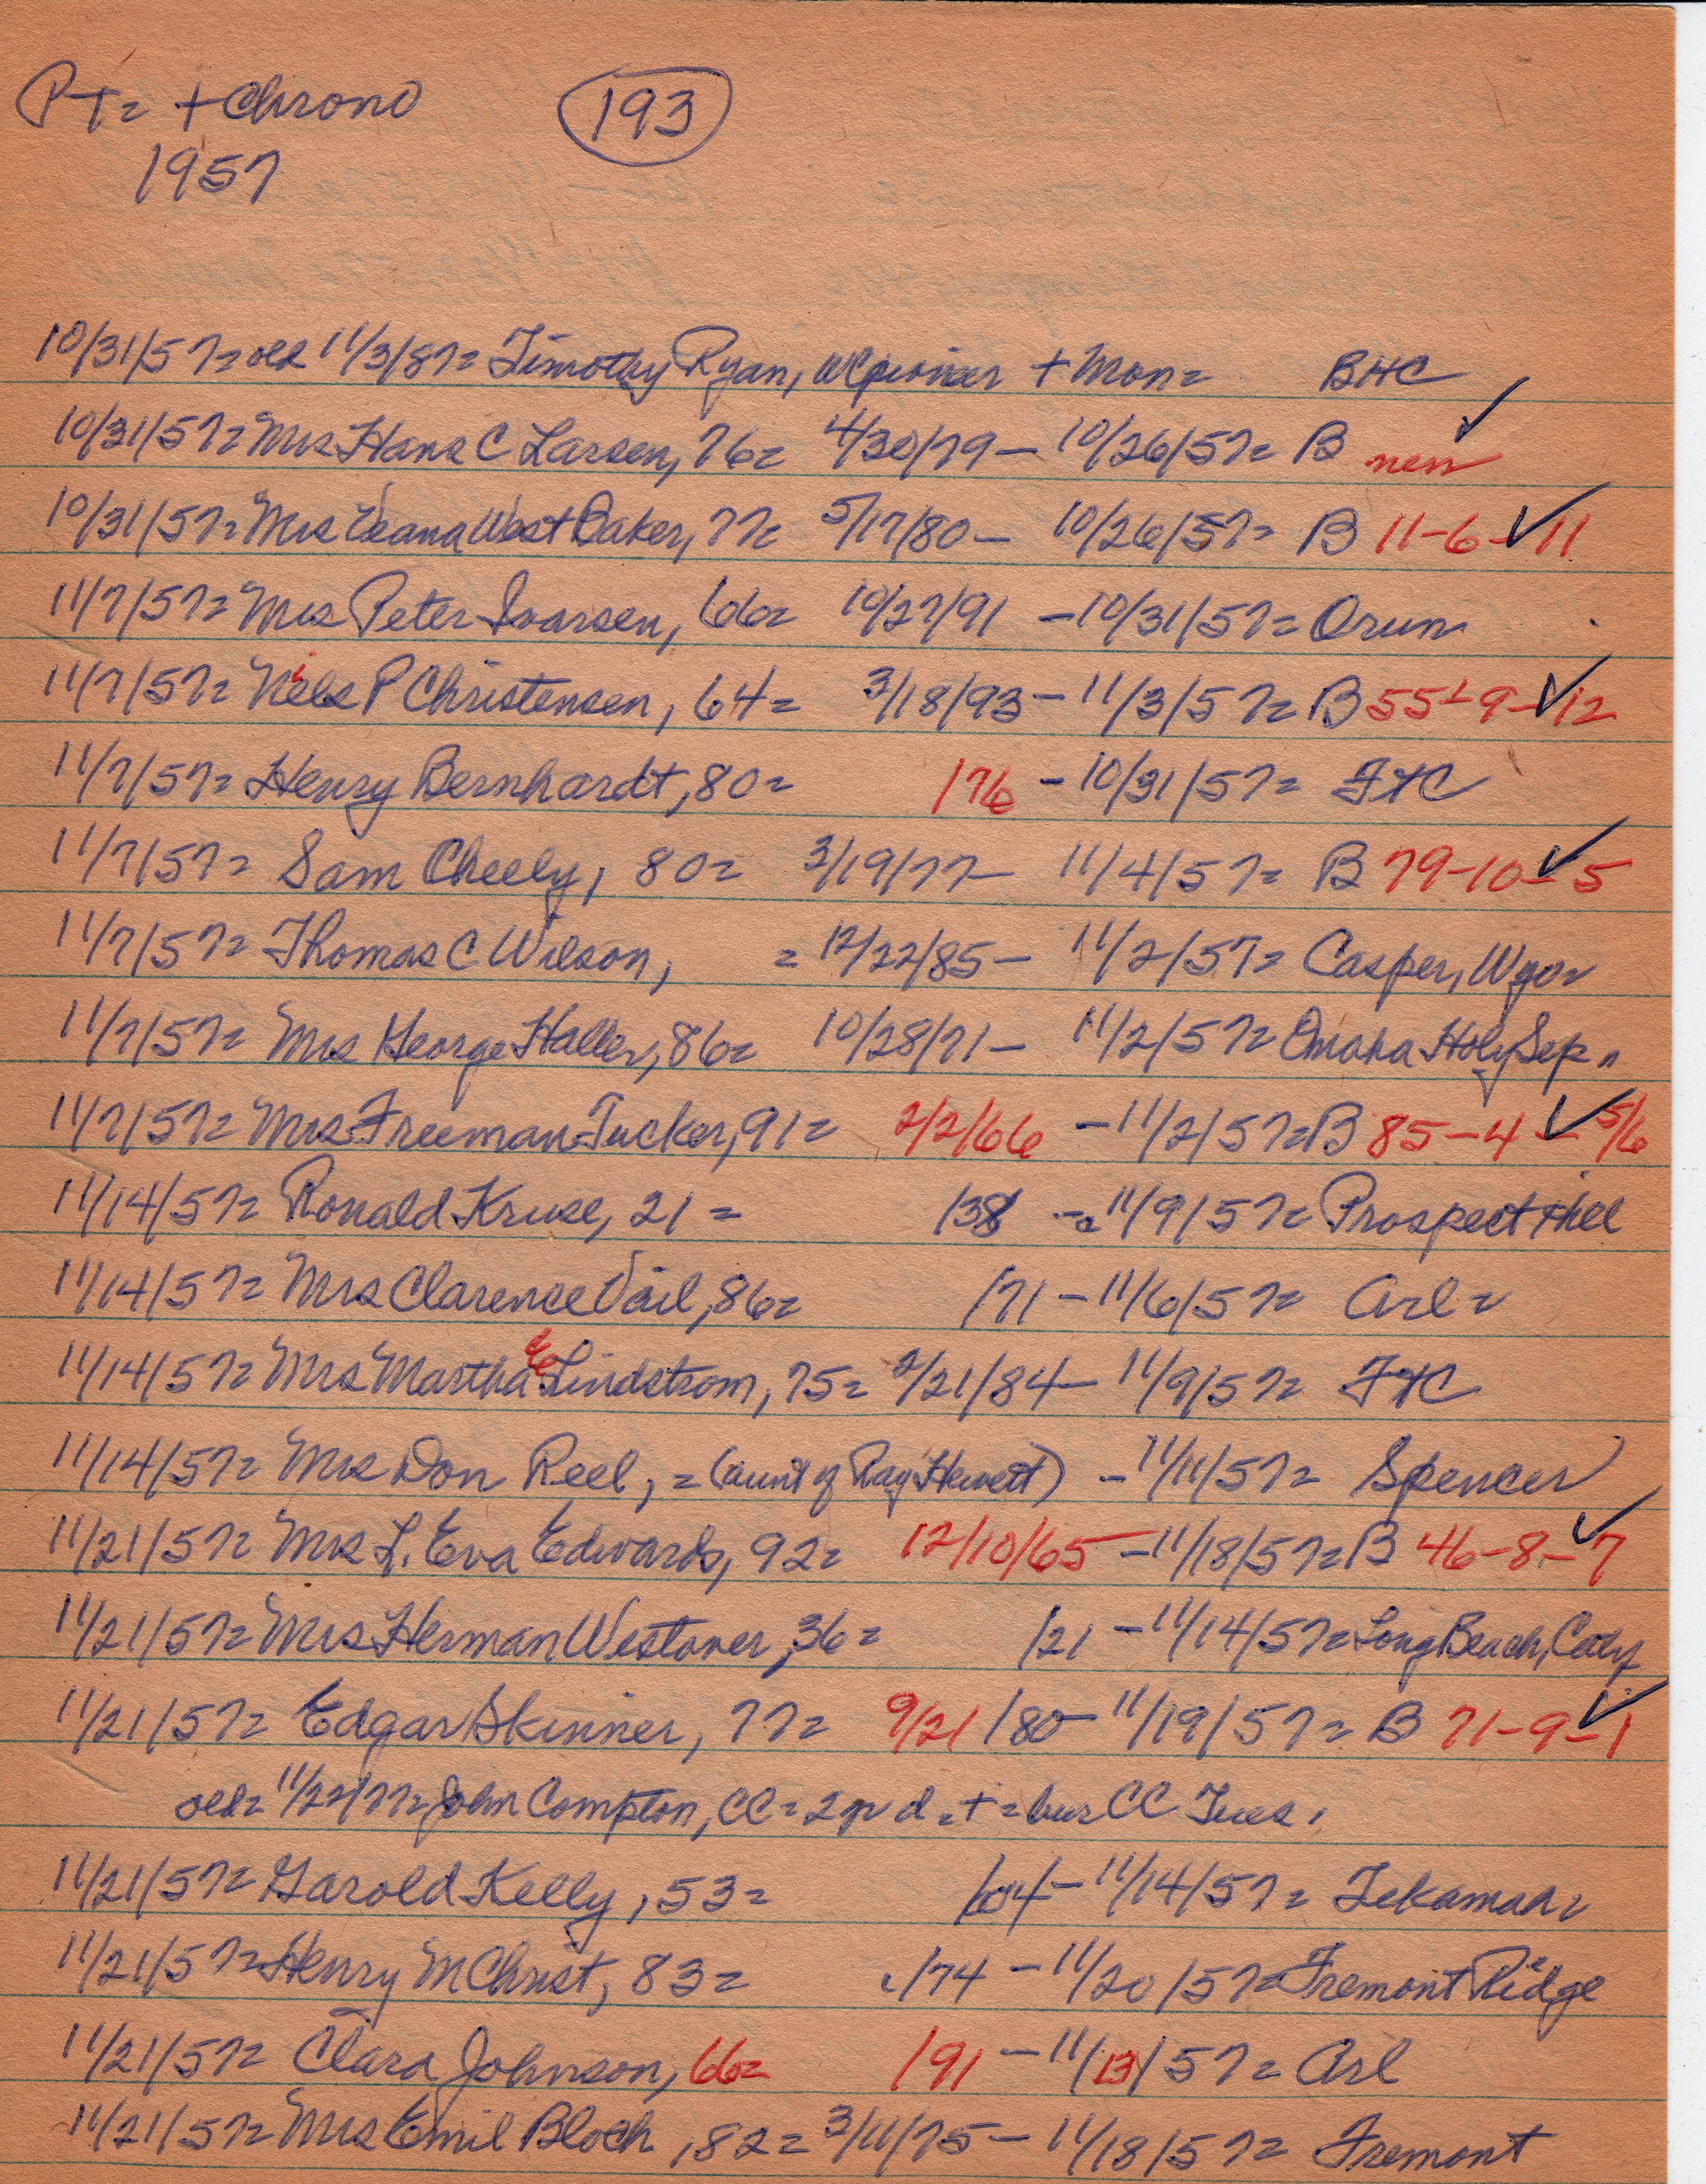 PT= + Chrono 193
1957
10/31/57= old 11/3/87= Timothy Ryan, WC pioneer + Mon= BHC
10/31/57= Mrs Hans C Larsen, 76= 4/30/79 – 10/26/57= B new ✓
10/31/57= Mrs Leana West Baker, 77= 5/17/80 – 10/26/57= B 11-6-✓11
11/7/57= Mrs Peter Ivarsen, 66= 10/27/91 – 10/31/57= Orum
11/7/57= Niels P Christensen, 64= 3/18/93 – 11/3/57= B 55-9-✓12
11/7/57= Henry Bernhardt, 80= /76 – 10/31/57= FtC
11/7/57= Sam Cheely, 80= 3/19/77 – 11/4/57= B 79-10-✓5
11/7/57= Thomas C Wilson, = 12/22/85 – 11/2/57= Casper, Wyo=
11/7/57= Mrs George Haller, 86= 10/28/71 – 11/2/57= Omaha Holy Sep=
11/7/57= Mrs Freeman Tucker, 91= 2/2/66 – 11/2/57= B 85-4-✓5/6
11/14/57= Ronald Kruse, 21= /38 – 11/9/57= Prospect Hill
11/14/57= Mrs Clarence Vail, 86= /71 – 11/6/57= Arl=
11/14/57= Mrs Martha Lindstrom, 75= 2/21/84 – 11/9/57= FtC
11/14/57= Mrs Don Reel, = (aunt of Ray Hewett) – 11/11/57= Spencer
11/21/57= Mrs L. Eva Edwards, 92= 12/10/65 – 11/18/57= B 46-8-✓7
11/21/57= Mrs Herman Westover, 36= /21 – 11/14/57= Long Beach, Calif
11/21/57= Edgar Skinner, 77= 9/21/80 – 11/19/57= B 71-9-✓1
old= 11/22/77= John Compton, CC= 2 p d = + = bur CC Tues.
11/21/57= Garold Kelly, 53= /04 – 11/14/57= Tekamah=
11/21/57= Henry M Christ, 83= /74 – 11/20/57= Fremont Ridge
11/21/57= Clara Johnson, 66= /91 – 11/13/57= Arl
11/21/57= Mrs Emil Bloch, 82= 3/11/75 – 11/18/57= Fremont